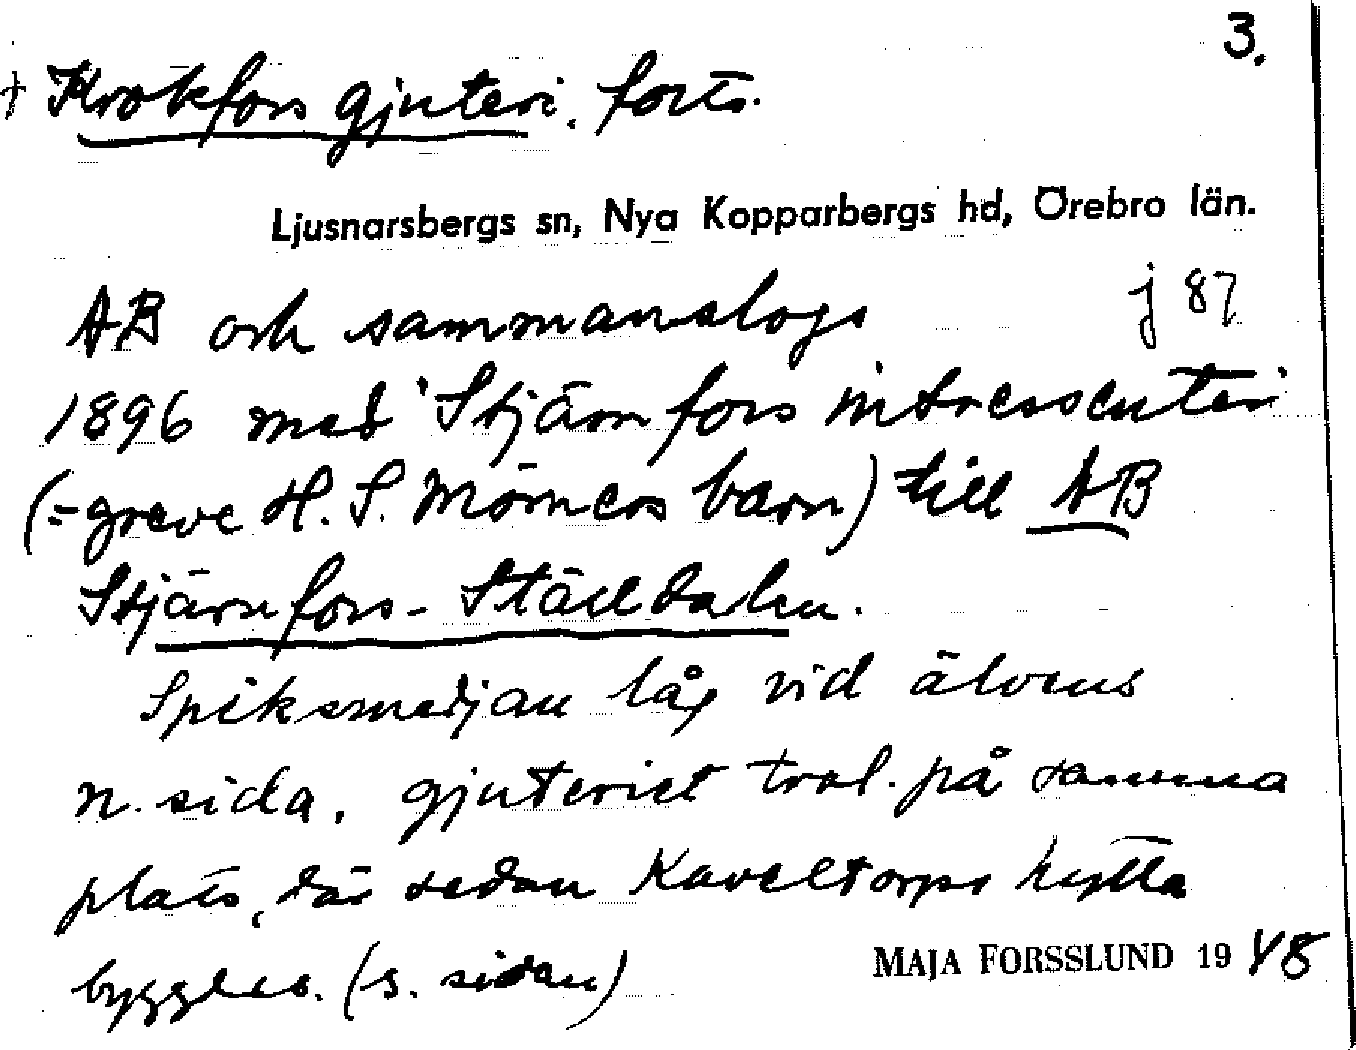 3.
† Krokfors gjuteri. forts.
Ljusnarsbergs sn, Nya Kopparbergs hd, Örebro län.
AB och sammanslogs j 87
1896 med Stjärnfors intressenter
(= greve H. S. Mörners barn) till AB
Stjärnfors-Ställdalen.
Spiksmedjan låg vid älvens
n. sida, gjuteriet trol. på samma
plats, där sedan Kaveltorps hytta
byggdes. (s. sidan)
MAJA FORSSLUND 1948